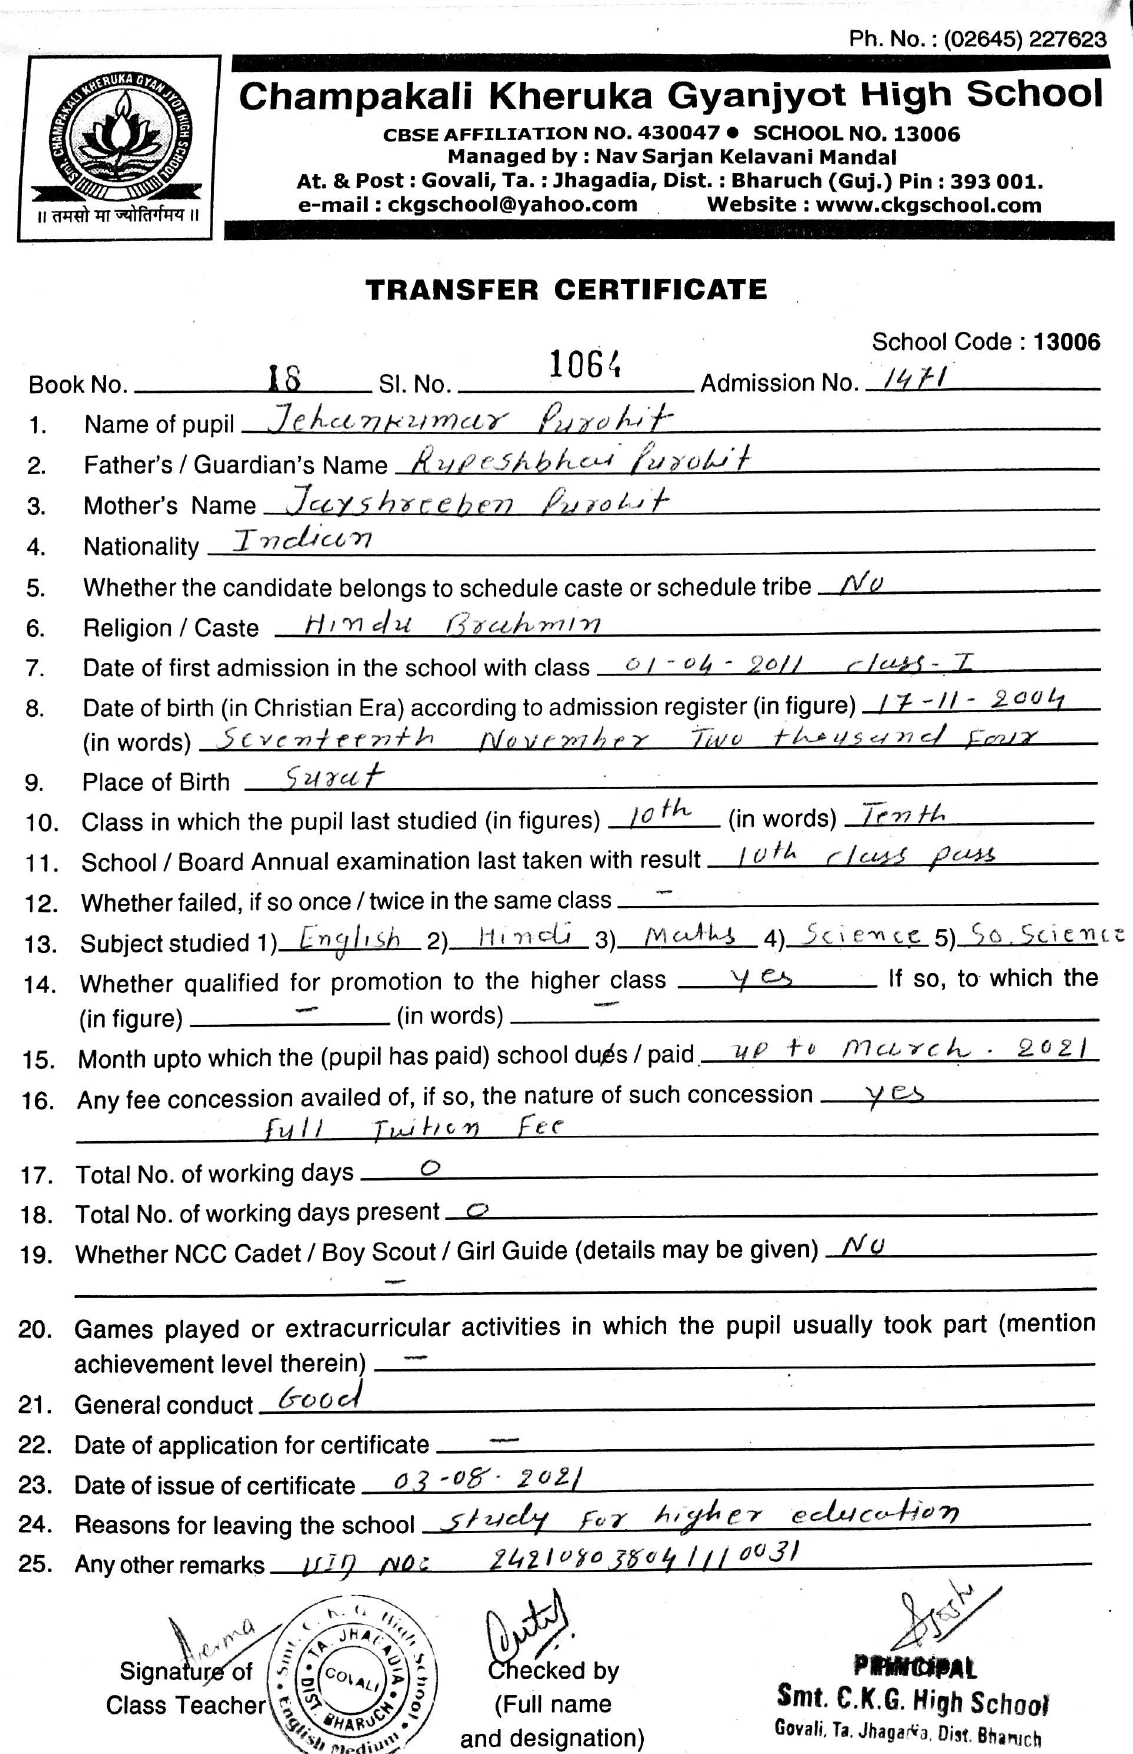 Ph. No. : (02645) 227623
Smt. CHAMPAKALI KHERUKA GYANJYOT HIGH SCHOOL
॥ तमसो मा ज्योतिर्गमय ॥
Champakali Kheruka Gyanjyot High School
CBSE AFFILIATION NO. 430047 ● SCHOOL NO. 13006
Managed by : Nav Sarjan Kelavani Mandal
At. & Post : Govali, Ta. : Jhagadia, Dist. : Bharuch (Guj.) Pin : 393 001.
e-mail : ckgschool@yahoo.com Website : www.ckgschool.com
TRANSFER CERTIFICATE
School Code : 13006
Book No. 18 Sl. No. 1064 Admission No. 1471
1. Name of pupil Jehankumar Purohit
2. Father's / Guardian's Name Rupeshbhai Purohit
3. Mother's Name Jayshreeben Purohit
4. Nationality Indian
5. Whether the candidate belongs to schedule caste or schedule tribe No
6. Religion / Caste Hindu Brahmin
7. Date of first admission in the school with class 01-04-2011 class-I
8. Date of birth (in Christian Era) according to admission register (in figure) 17-11-2004
(in words) Seventeenth November Two thousand Four
9. Place of Birth Surat
10. Class in which the pupil last studied (in figures) 10th (in words) Tenth
11. School / Board Annual examination last taken with result 10th class pass
12. Whether failed, if so once / twice in the same class -
13. Subject studied 1) English 2) Hindi 3) Maths 4) Science 5) So. Science
14. Whether qualified for promotion to the higher class yes If so, to which the
(in figure) - (in words) -
15. Month upto which the (pupil has paid) school dues / paid up to March. 2021
16. Any fee concession availed of, if so, the nature of such concession yes
full Tuition Fee
17. Total No. of working days 0
18. Total No. of working days present 0
19. Whether NCC Cadet / Boy Scout / Girl Guide (details may be given) No
-
20. Games played or extracurricular activities in which the pupil usually took part (mention
achievement level therein) -
21. General conduct Good
22. Date of application for certificate -
23. Date of issue of certificate 03-08-2021
24. Reasons for leaving the school study for higher education
25. Any other remarks UID NO: 242108038041110031
Signature of
Class Teacher
Smt. C. K. G. High School • English Medium •
TA. JHAGADIA • DIST. BHARUCH •
GOVALI
Checked by
(Full name
and designation)
PRINCIPAL
Smt. C.K.G. High School
Govali, Ta. Jhagadia, Dist. Bharuch